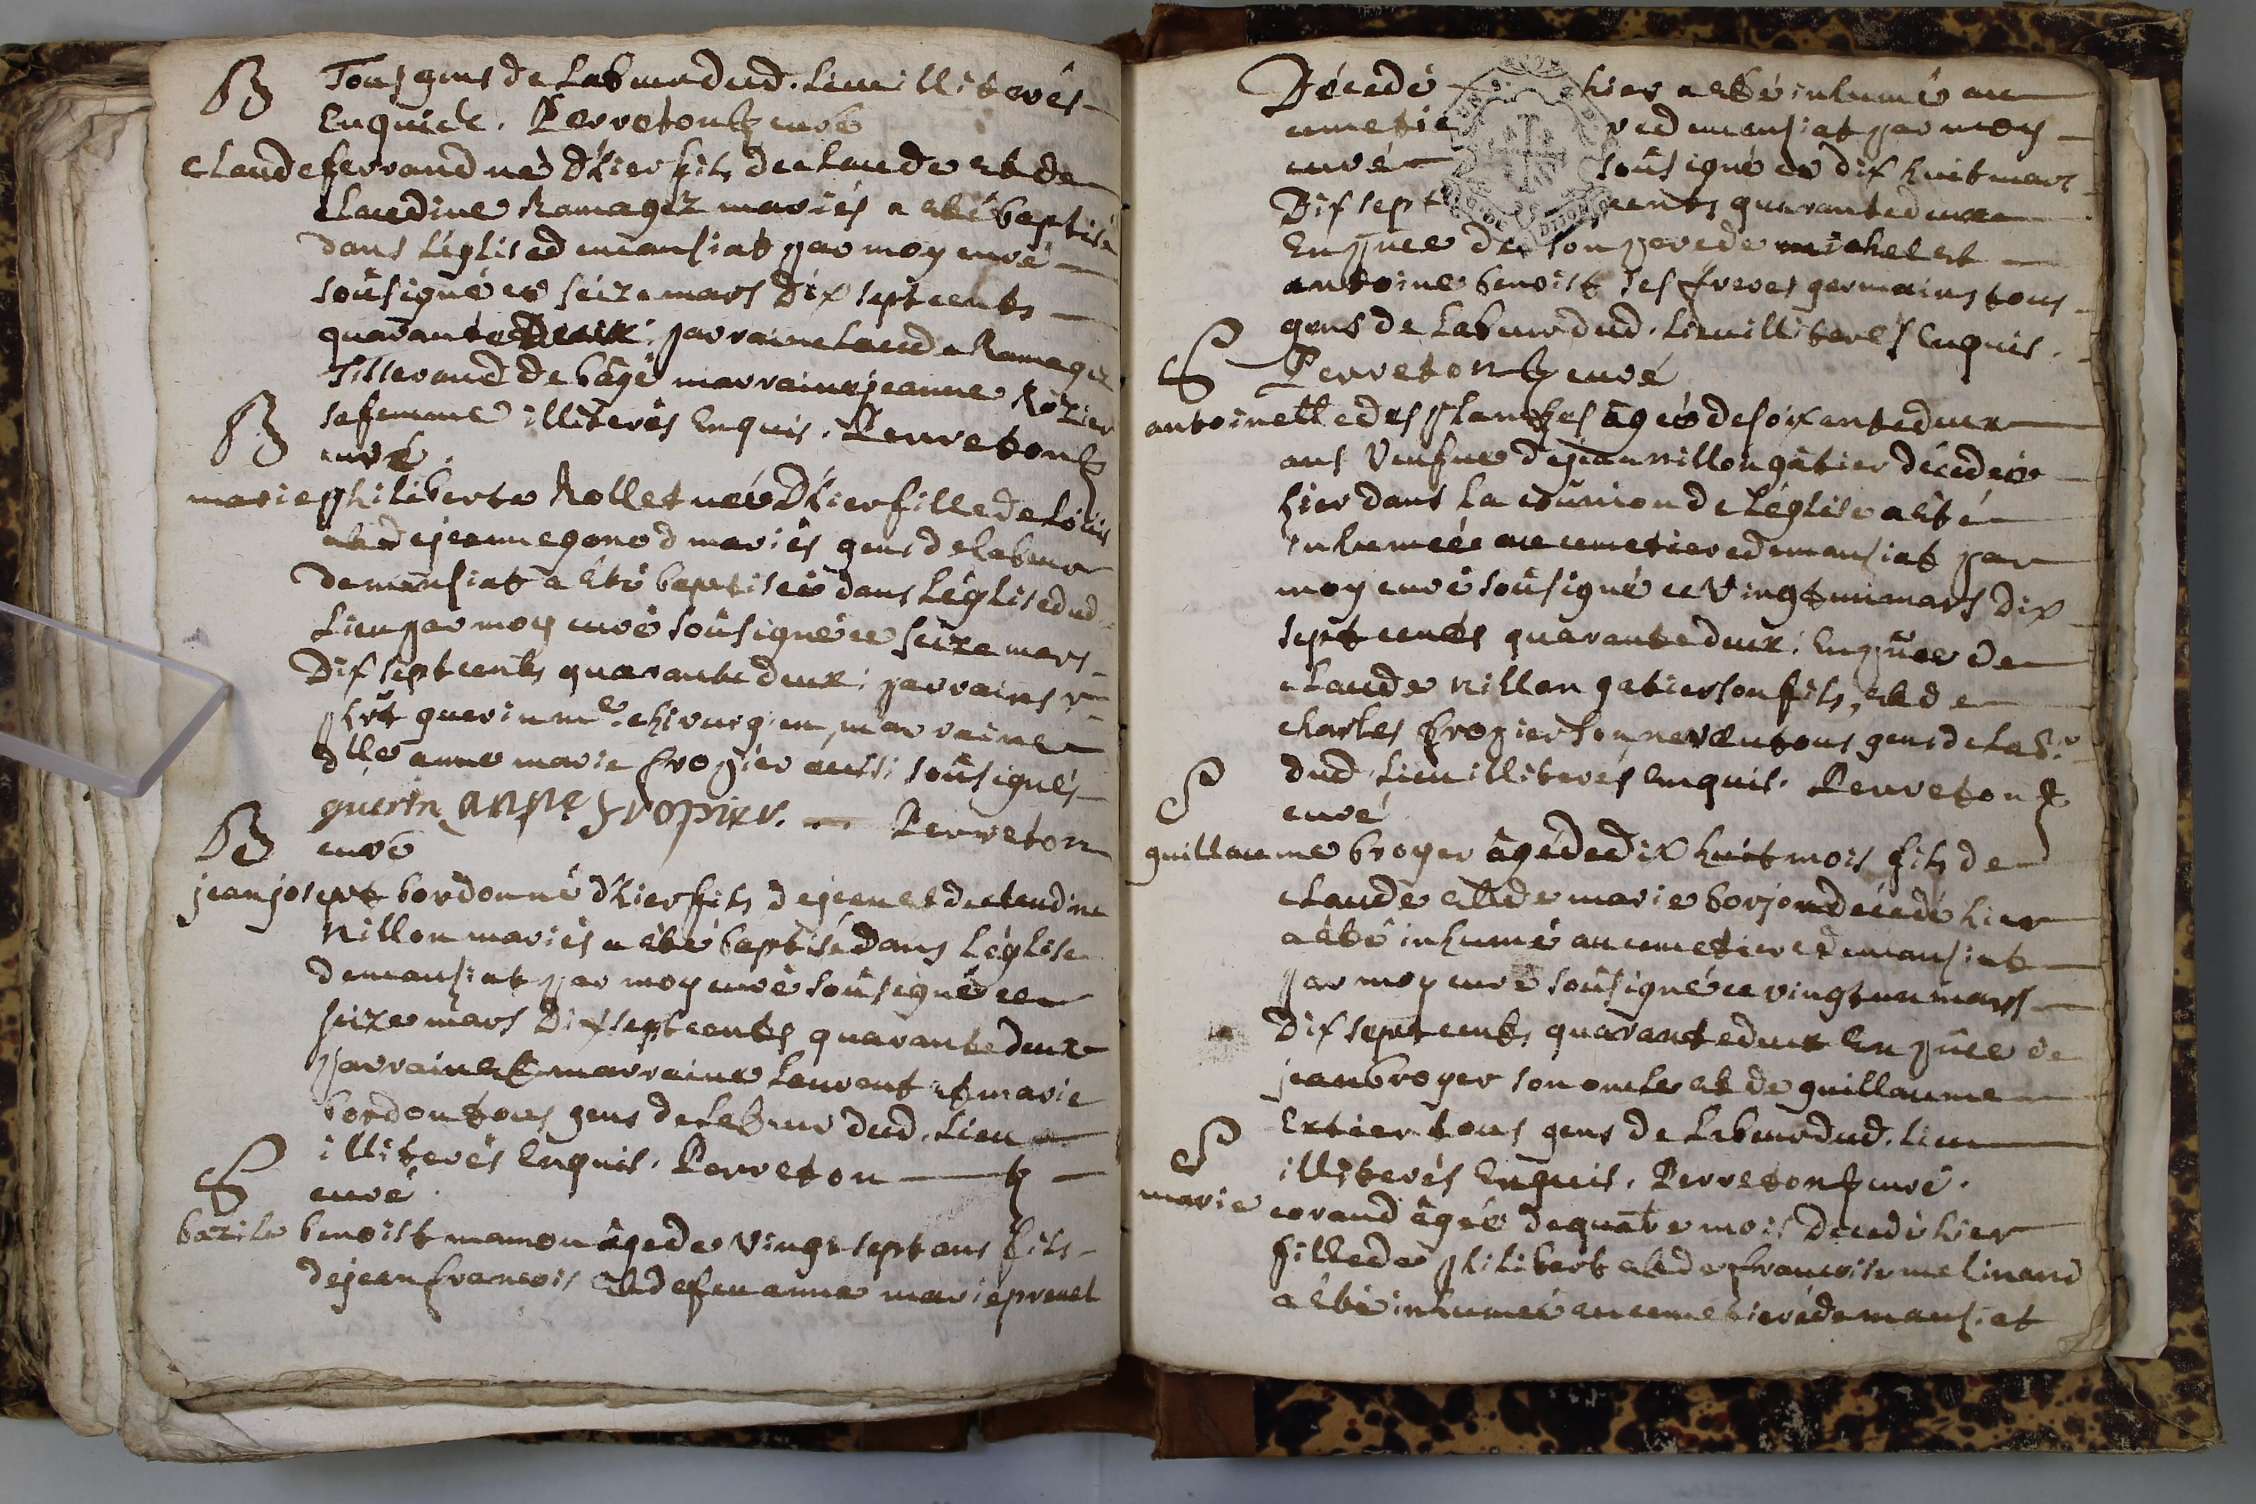 B
Tous gens de Labour dud. Lieu illiterés
Enquick. Perreton curé
Claude ferrand né D'hier fils de claude et de
claudine Ramagez mariés a eté baptisé
dans L'églised demansiat par moy curé
soûsigné ce seize mars dix sept cents
quarante deux : parrain claude Ramagez
Tisserand de bâgé marraine jeanne Rozier
sa femme illiterés Enquis. Perreton
B
curé.
marie philiberte Rollet née D'hier fille de Loüis
et de jeanne gonod mariés gens de labour
demansiat a êté baptisée dans L'églised dud.
Lieu par moy curé soûsigné ce seize mars
Dix sept cents quarante deux : parrains r
phrt guerin me. chirurgien, marraine
dlle anne marie fropier aussi soûsignés
guerin anne fropier. Perreton
B
curé
jean josept bordon né d'hier fils de jean et de claudine
Nillon mariés a êté baptisé dans L'églises
demansiat par moy curé soûsigné ce
seize mars Dix sept cents quarante deux
parrain et marraine Laurent et marie
bordon tous gens de Labour dud. Lieu
illiterés Enquis. Perreton
S
curé.
bazile benoist mamon âgé de vingt sept ans fils
de jean francois et defeu anne marie prevel
Décedé hier a eté inhumé au
cimetie re demansiat par moy
curé soûsigné ce dix huit mars
Dix sept cents quarante deux
En pnce de son pere de michel et
antoine benoist ses freres germains tous
gens de Labour dud. Lieu illiterés Enquis.
S
Perreton curé
antoinette des planches âgée de soixante deux
ans Veufue de jean nillon gâtier décedée
hier dans la common de L'églises a êté
inhumée au cimetiere demansiat par
moy curé soûsigné ce Vingt un mars Dix
sept cents quarante deux : En pnce de
claude nillon gatier son fils, et de
charles fropier son neveu tous gens de Lab.r
S
dud. Lieu illiterés Enquis. Perreton
curé
guillaume broyer âgé de dix huit mois fils de
claude et de marie borjon décedé hier
a êté inhumé au cimetiere demansiat
par moy curé soûsigné ce vingt un mars
Dix sept cents quarante deux En pnce de
jean broyer son oncle et de guillaume
Extier tous gens de Labour dud. Lieu
S
illiterés Enquis. Perreton curé.
marie corand âgée de quatre mois decedé hier
fille de philibert et de francoise melinand
a êté inhumée au cimetiere demansiat